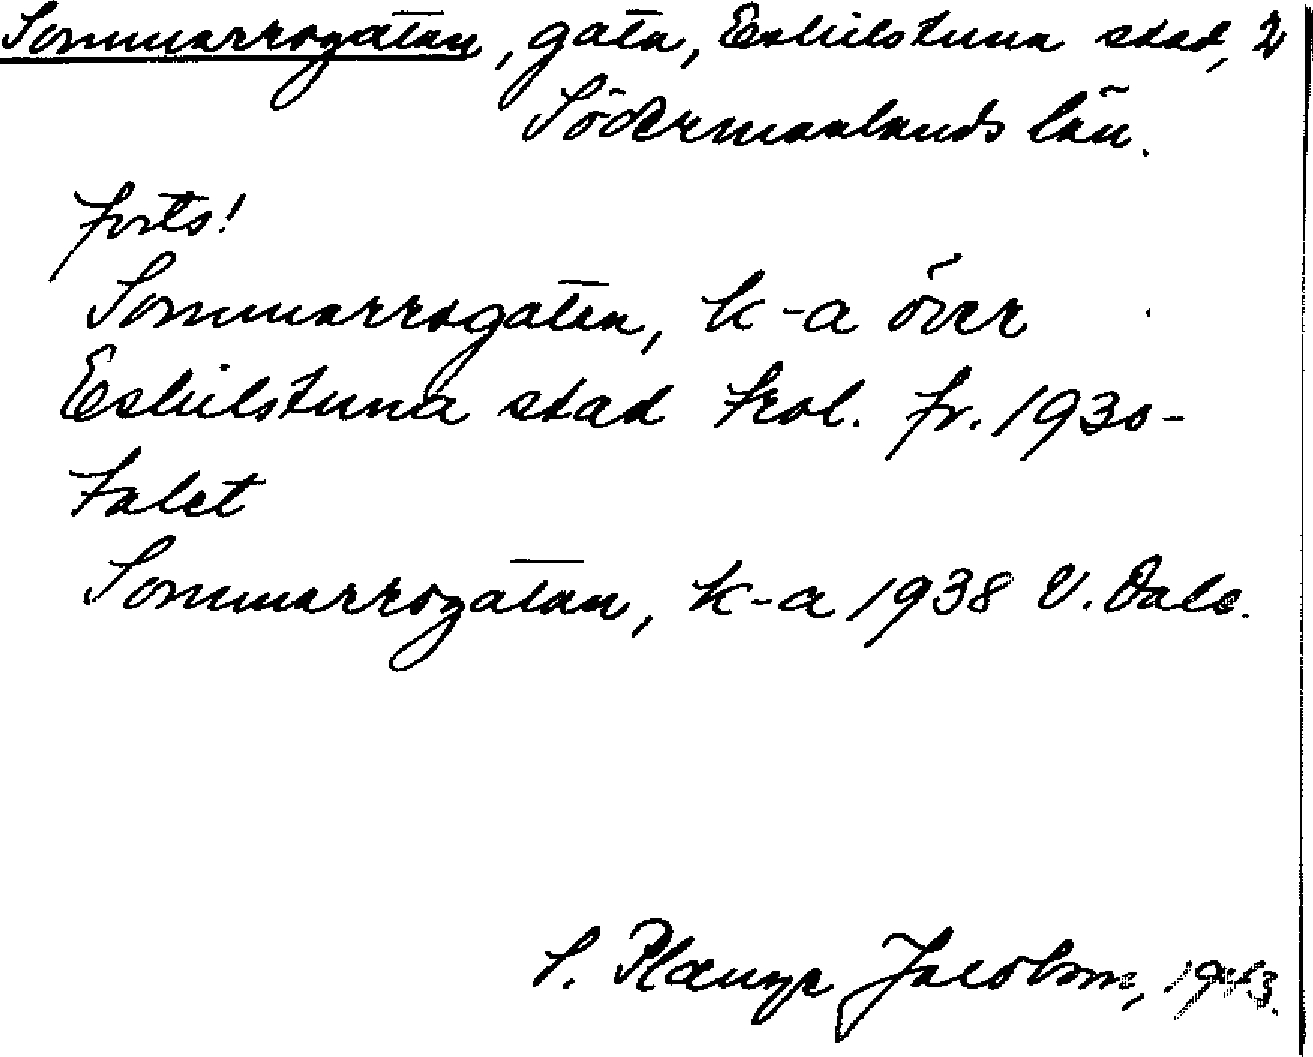 Sommarrogatan, gata, Eskilstuna stad, 2
Södermanlands län.
forts!
Sommarrogatan, k-a över
Eskilstuna stad trol. fr. 1930-
talet
Sommarrogatan, k-a 1938 V. Dale.
S. Plænge Jacobson, 1943.